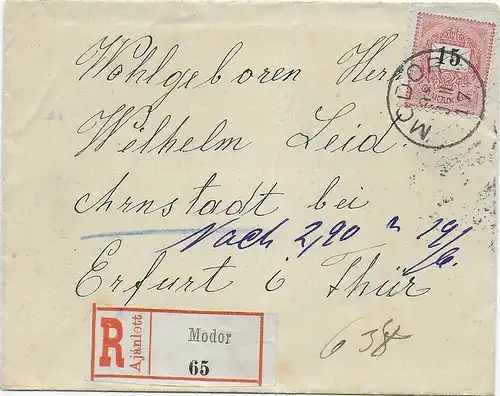 15
MODOR
Wohlgeboren Herr
Wilhelm Leid
Arnstadt bei
Nach 2,90 19/6.
Erfurt i Thür
R
Ajánlott
Modor
65
638